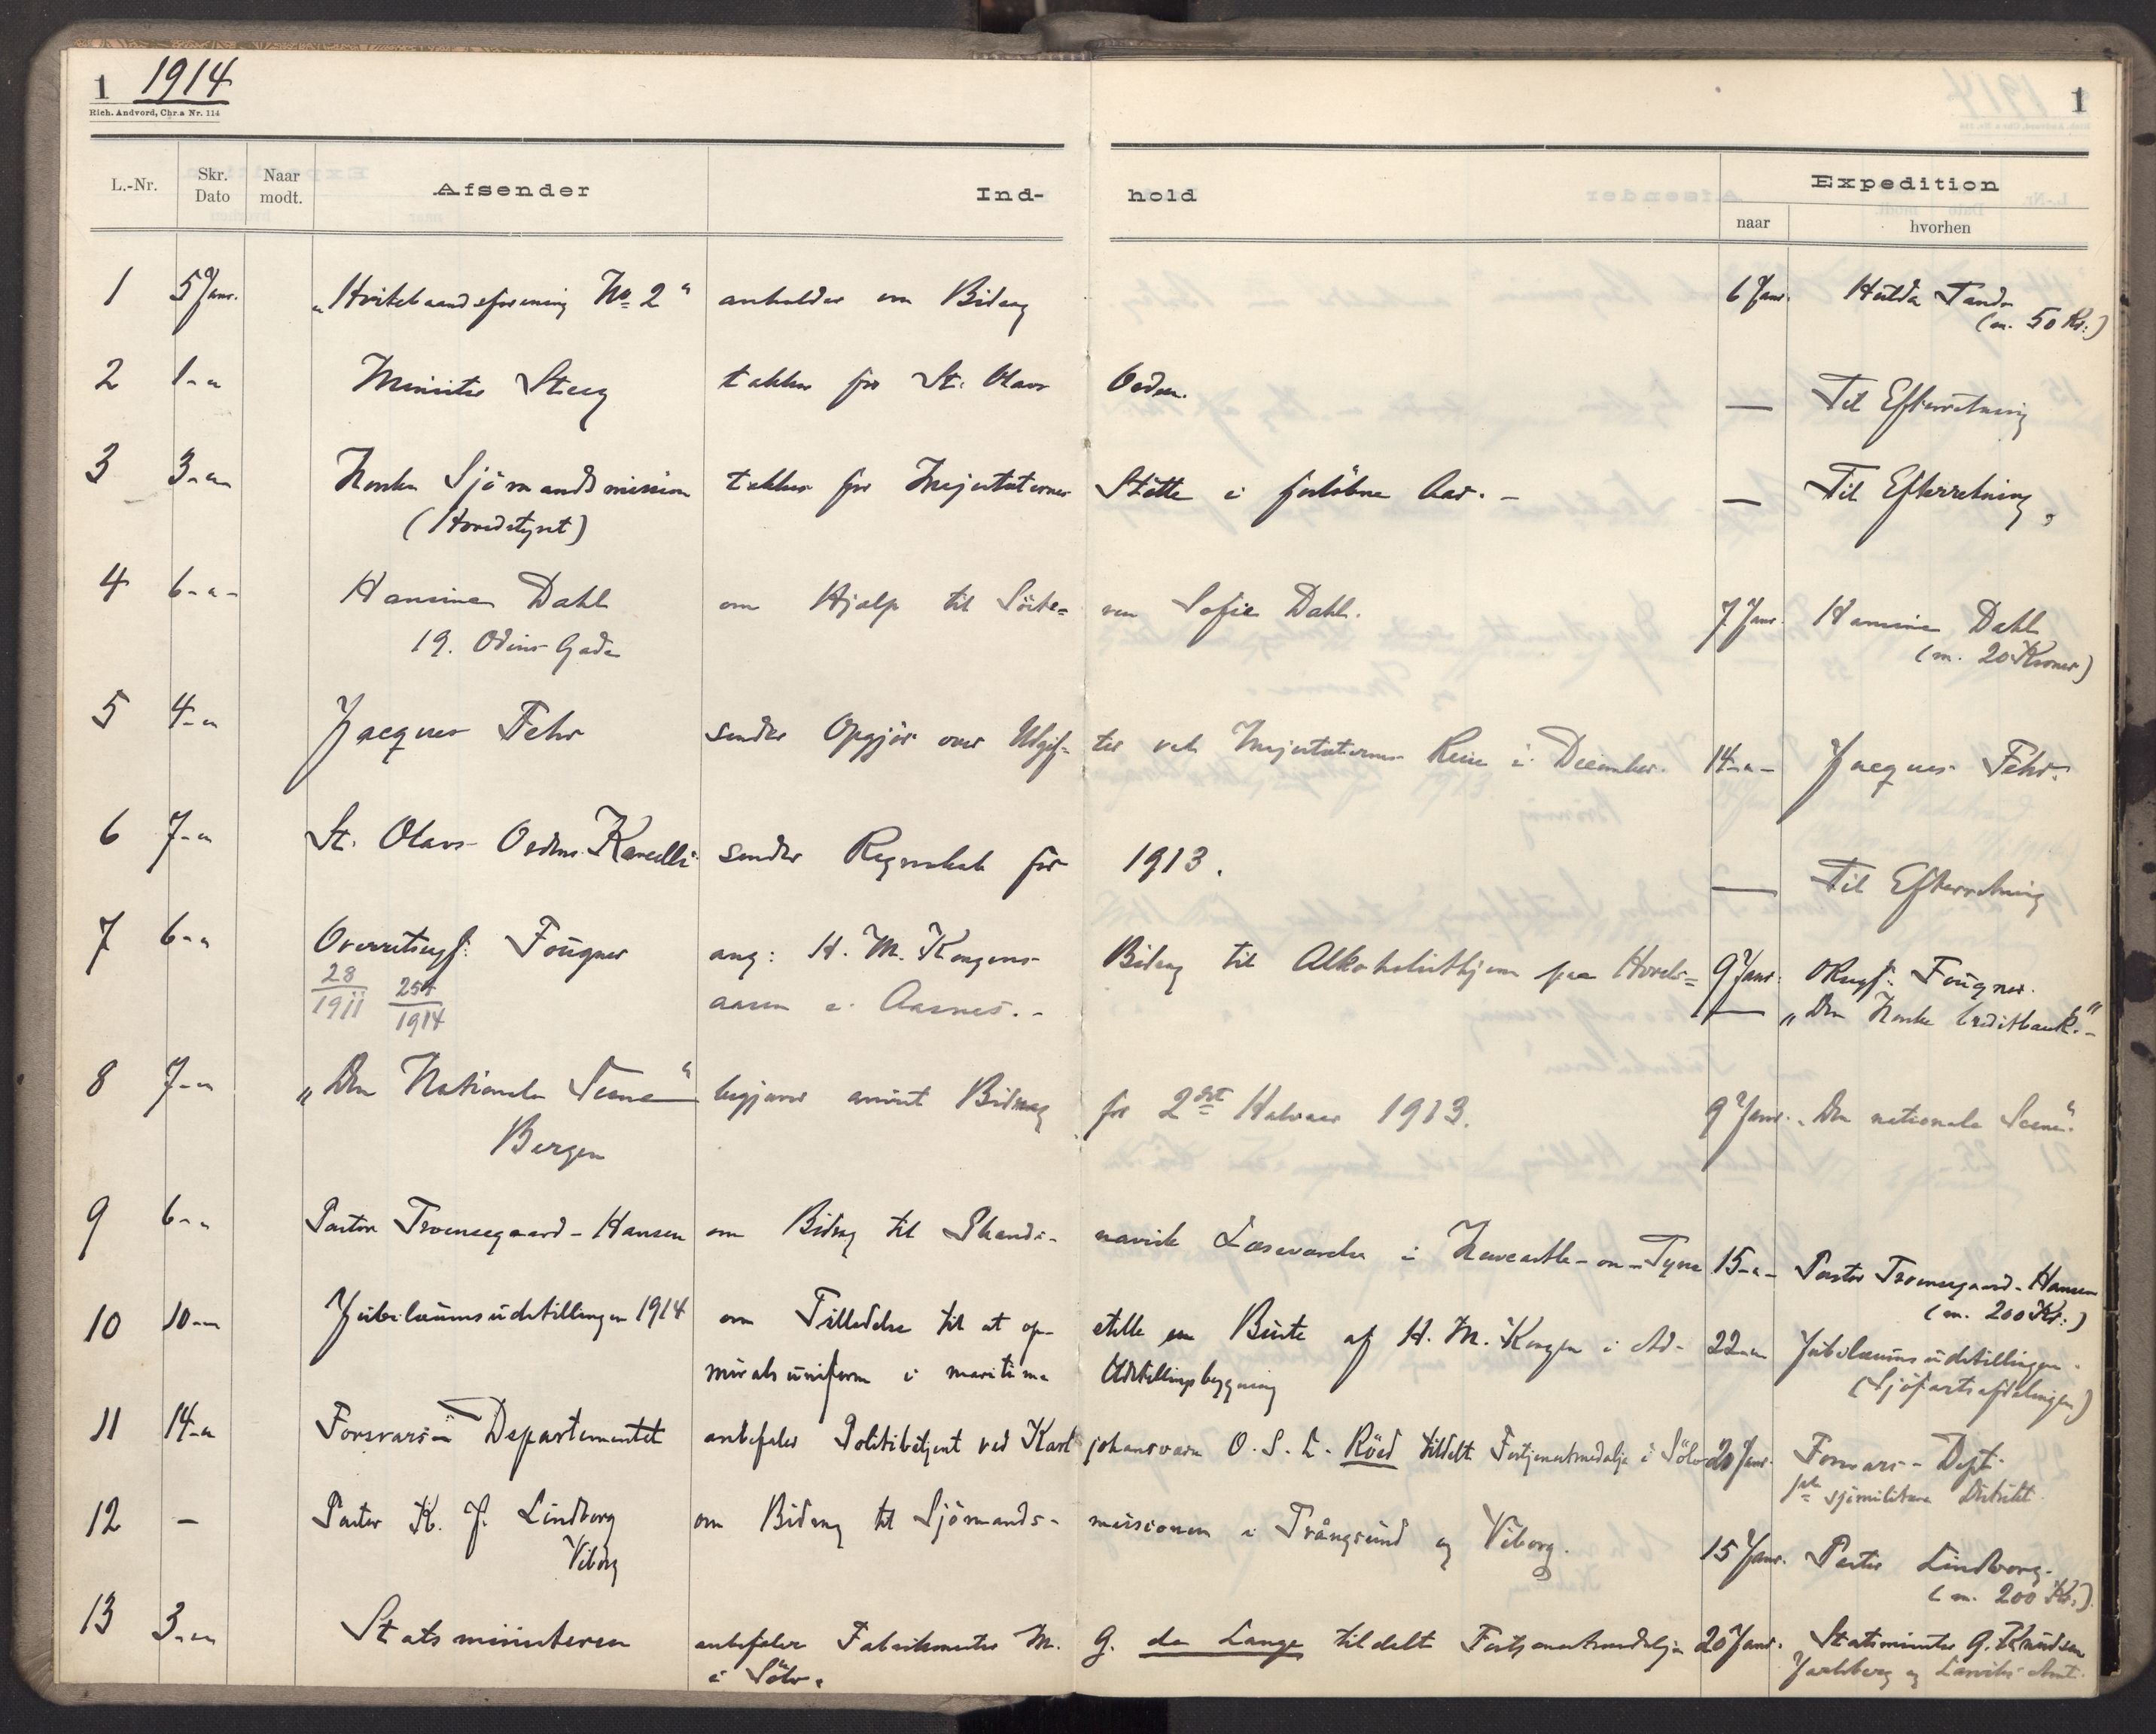 1 1914
Rich. Andvord, Chr.a Nr. 114
1
L.-Nr. Skr. Dato Naar modt. Afsender Ind- hold Expedition
naar hvorhen
1 5 Janr. „Hvitebaandsforening No 2“ anholder om Bidrag 6 Janr. Hulda
(m. 50 Kr.)
2 1-"- Minister takker for St. Olavs Orden. — Til Efterretning
3 3-"- Norske Sjömandsmission takker for Majestæternes Stötte i forløbne Aar. – — Til Efterretning
(Hovedstyret)
4 6-"- Hansine Dahl om Hjælp til Söste= ren Sofie Dahl. 7 Janr. Hansine Dahl
19. Odins Gade (m. 20 Kroner)
5 4-"- Jacques Fehr sender Opgjör over Utgif= ter ved Majestæternes Reise i December. 14-"- Jacques Fehr.
6 7-"- St. Olavs Ordens Kancelli sender Regnskab for 1913. — Til Efterretning
7 6-"- Overretssagf: Fougner ang: H. M. Kongens Bidrag til Alkoholisthjem paa Hovels= 9 Janr. ORsagf: Fougner.
28/1911 254/1914 aasen i Aasnes. – — „Den Norske Creditbank.“ –
8 7-"- „Den Nationale Scene“ begjærer anvist Bidrag for 2det Halvaar 1913. 9 Janr. „Den nationale Scene“
Bergen
9 6-"- Pastor Troensegaard-Hansen om Bidrag til Skandi- navisk Læseværelse i Newcastle-on-Tyne 15-"- Pastor Troensegaard-Hansen
(m. 200 Kr.)
10 10-"- Jubilæumsudstillingen 1914 om Tilladelse til at op- stille en Büste af H. M. Kongen i Ad- 22-"- Jubilæumsudstillingen.
miralsuniform i maritime Udstillingsbygning (Sjöfartsafdelingen)
11 14-"- Forsvars-Departementet anbefaler Politibetjent ved Karl johansvern O. S. L. Röed tildelt Fortjenstmedalje i Sölv 20 Janr. Forsvars-Dept.
1ste sjömilitære Distrikt.
12 – Pastor K. J. Lindborg om Bidrag til Sjömands- missionen i Trångsund og Viborg. 15 Janr. Pastor Lindborg.
Viborg (m. 200 Kr.)
13 3-"- Statsministeren anbefaler Fabrikmester M. G. de Lange tildelt Fortjenstmedalje 20 Janr. Statsminister G. Knudsen
i Sölv. Jarlsberg og Larviks Amt.